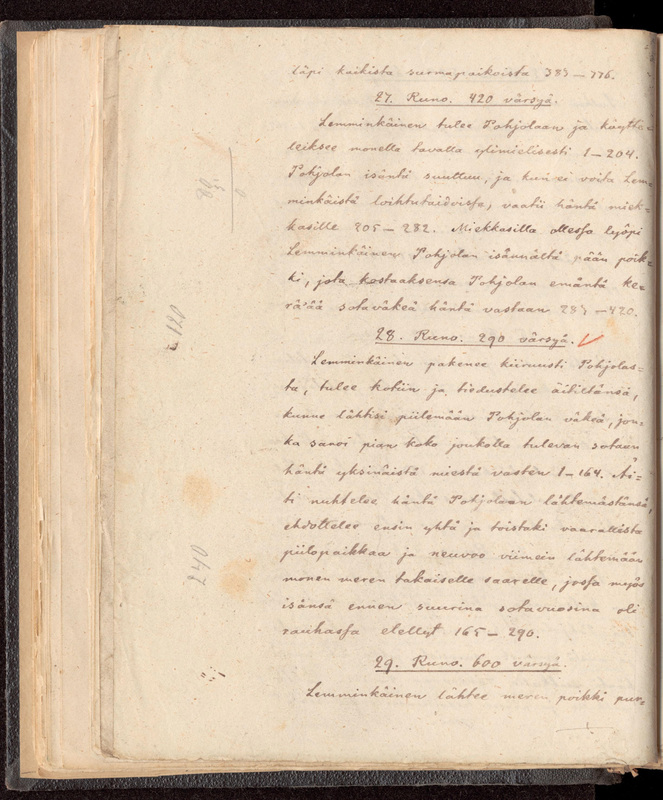 läpi kaikista surmapaikoista 383–776.
27. Runo. 420 värsyä.
Lemminkäinen tulee Pohjolaan ja käytte-
leiksee monella tavalla ylimielisesti 1–204.
Pohjolan isäntä suuttuu, ja kun ei voita Lem-
minkäistä loihtutaidoissa, vaatii häntä miek-
kasille 205–282. Miekkasilla ollessa lyöpi
Lemminkäinen Pohjolan isännältä pään poik-
ki, jota kostaaksensa Pohjolan emäntä ke-
rä'ää sotaväkeä häntä vastaan 283–420.
28. Runo. 290 värsyä.
Lemminkäinen pakenee kiiruusti Pohjolas-
ta, tulee kotiin ja tiedustelee äitiltänsä,
kunne lähtisi piilemään Pohjolan väkeä, jon-
ka sanoi pian koko joukolla tulevan sotaan
häntä yksinäistä miestä vasten 1–164. Äi-
ti nuhtelee häntä Pohjolaan lähtemästänsä,
ehdottelee ensin yhtä ja toistaki vaarallista
piilopaikkaa ja neuvoo viimein lähtemään
monen meren takaiselle saarelle, jossa myös
isänsä ennen suurina sotavuosina oli
rauhassa elellyt 165–290.
29. Runo. 600 värsyä.
Lemminkäinen lähtee meren poikki pur-
120
240